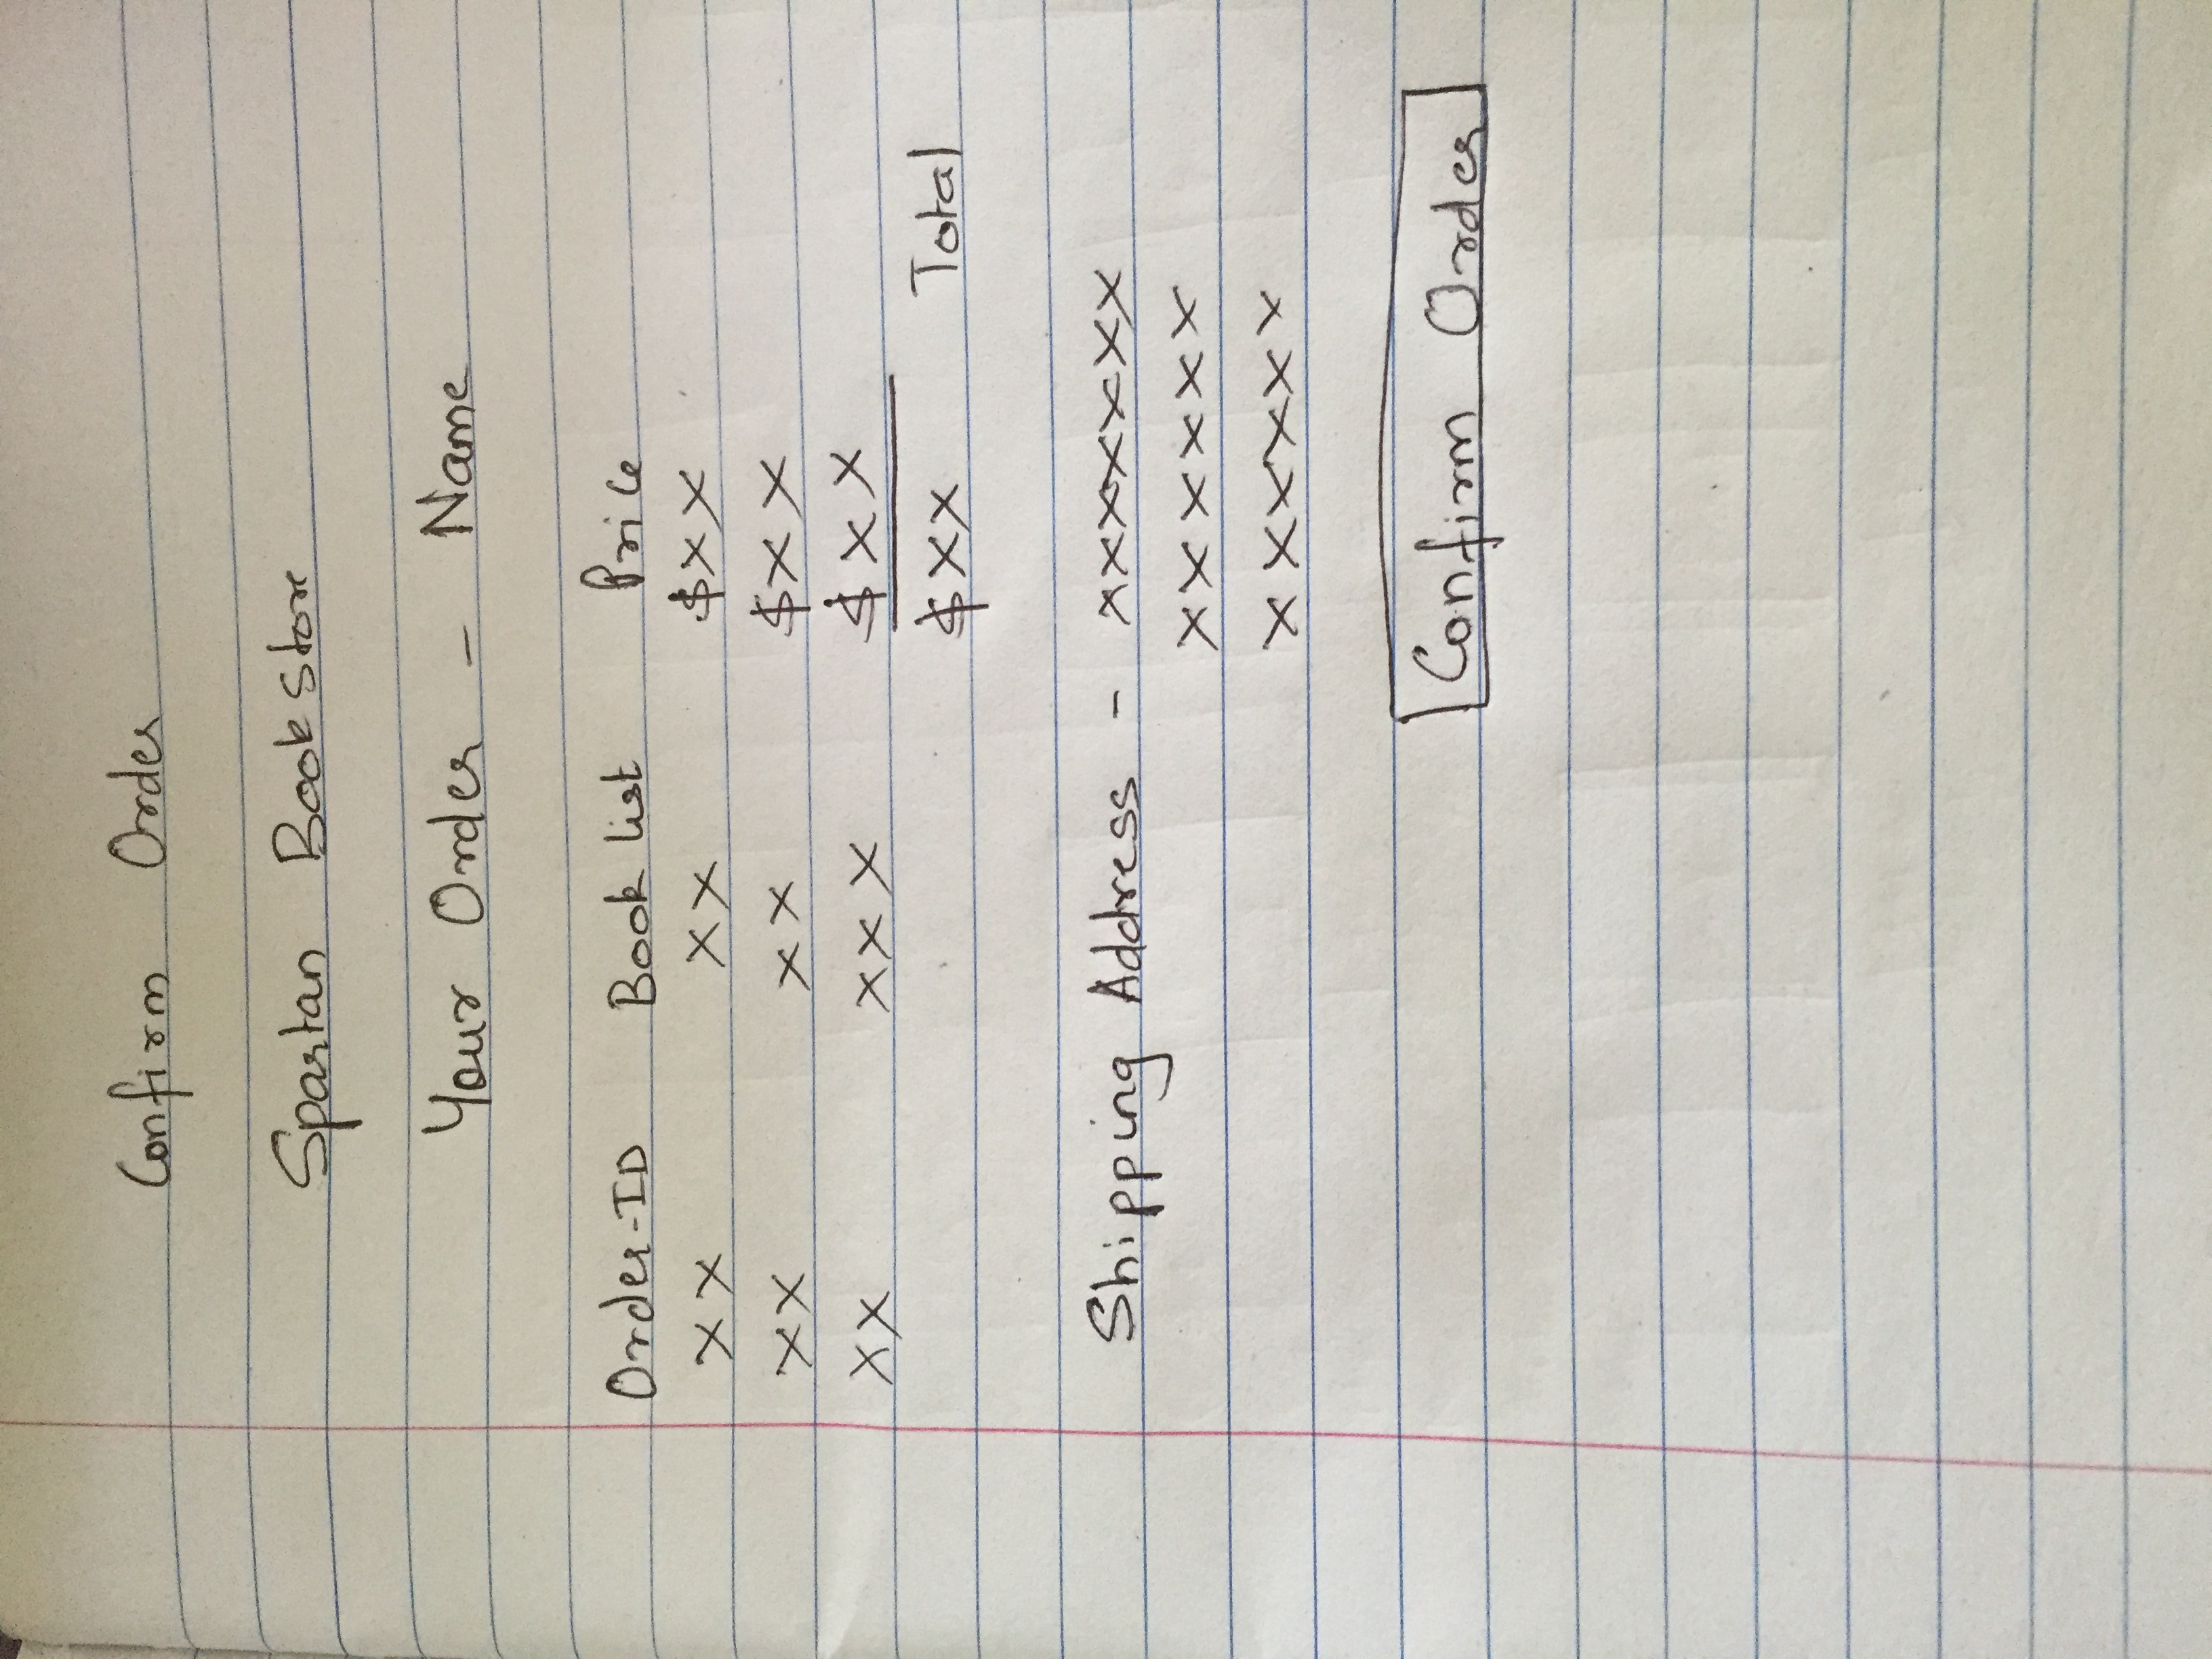 Confirm Order
Spartan Book Store
Your Order - Name
Order-ID Book list Price
XX XX $XX
XX XX $XX
XX XXX $XX
$XX Total
Shipping Address - XXXXXXX
XXXXXX
XXXXXX
Confirm Order